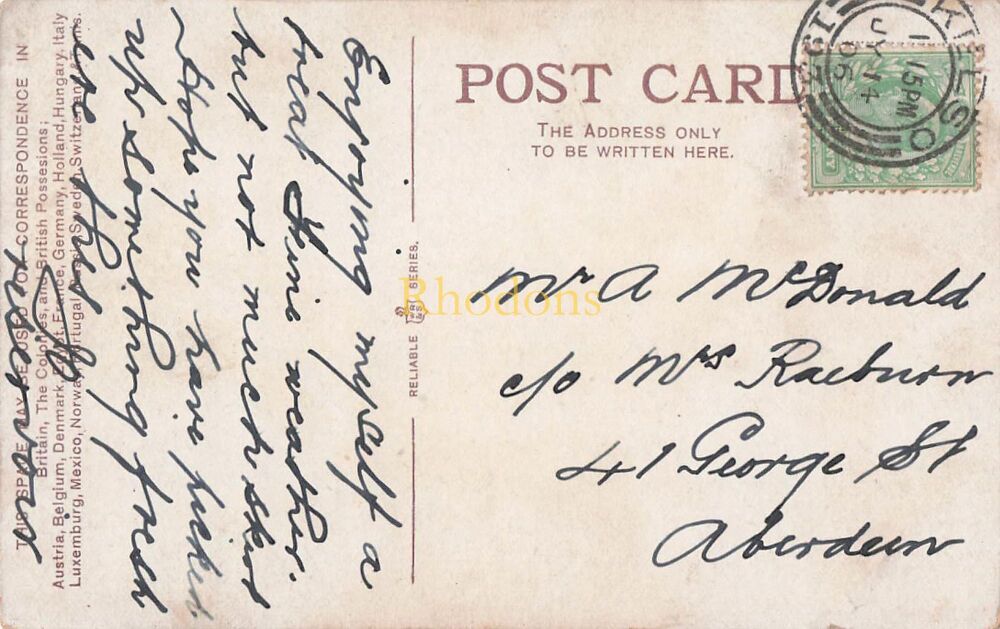 THIS SPACE MAY BE USED FOR CORRESPONDENCE IN
Britain, The Colonies, and British Possesions;
Austria, Belgium, Denmark, Egypt, France, Germany, Holland, Hungary, Italy
Luxemburg, Mexico, Norway, Portugal, Russia, Sweden, Switzerland & Tunis.
Enjoying myself a
treat fine weather
but not much skirt
Hope you have picked
up something fresh
like the
POST CARD
THE ADDRESS ONLY
TO BE WRITTEN HERE.
KELSO
1 15PM
JY 14
06
RELIABLE WR&S SERIES.
Rhodons
Mr A McDonald
c/o Mrs Raeburn
41 George St
Aberdeen